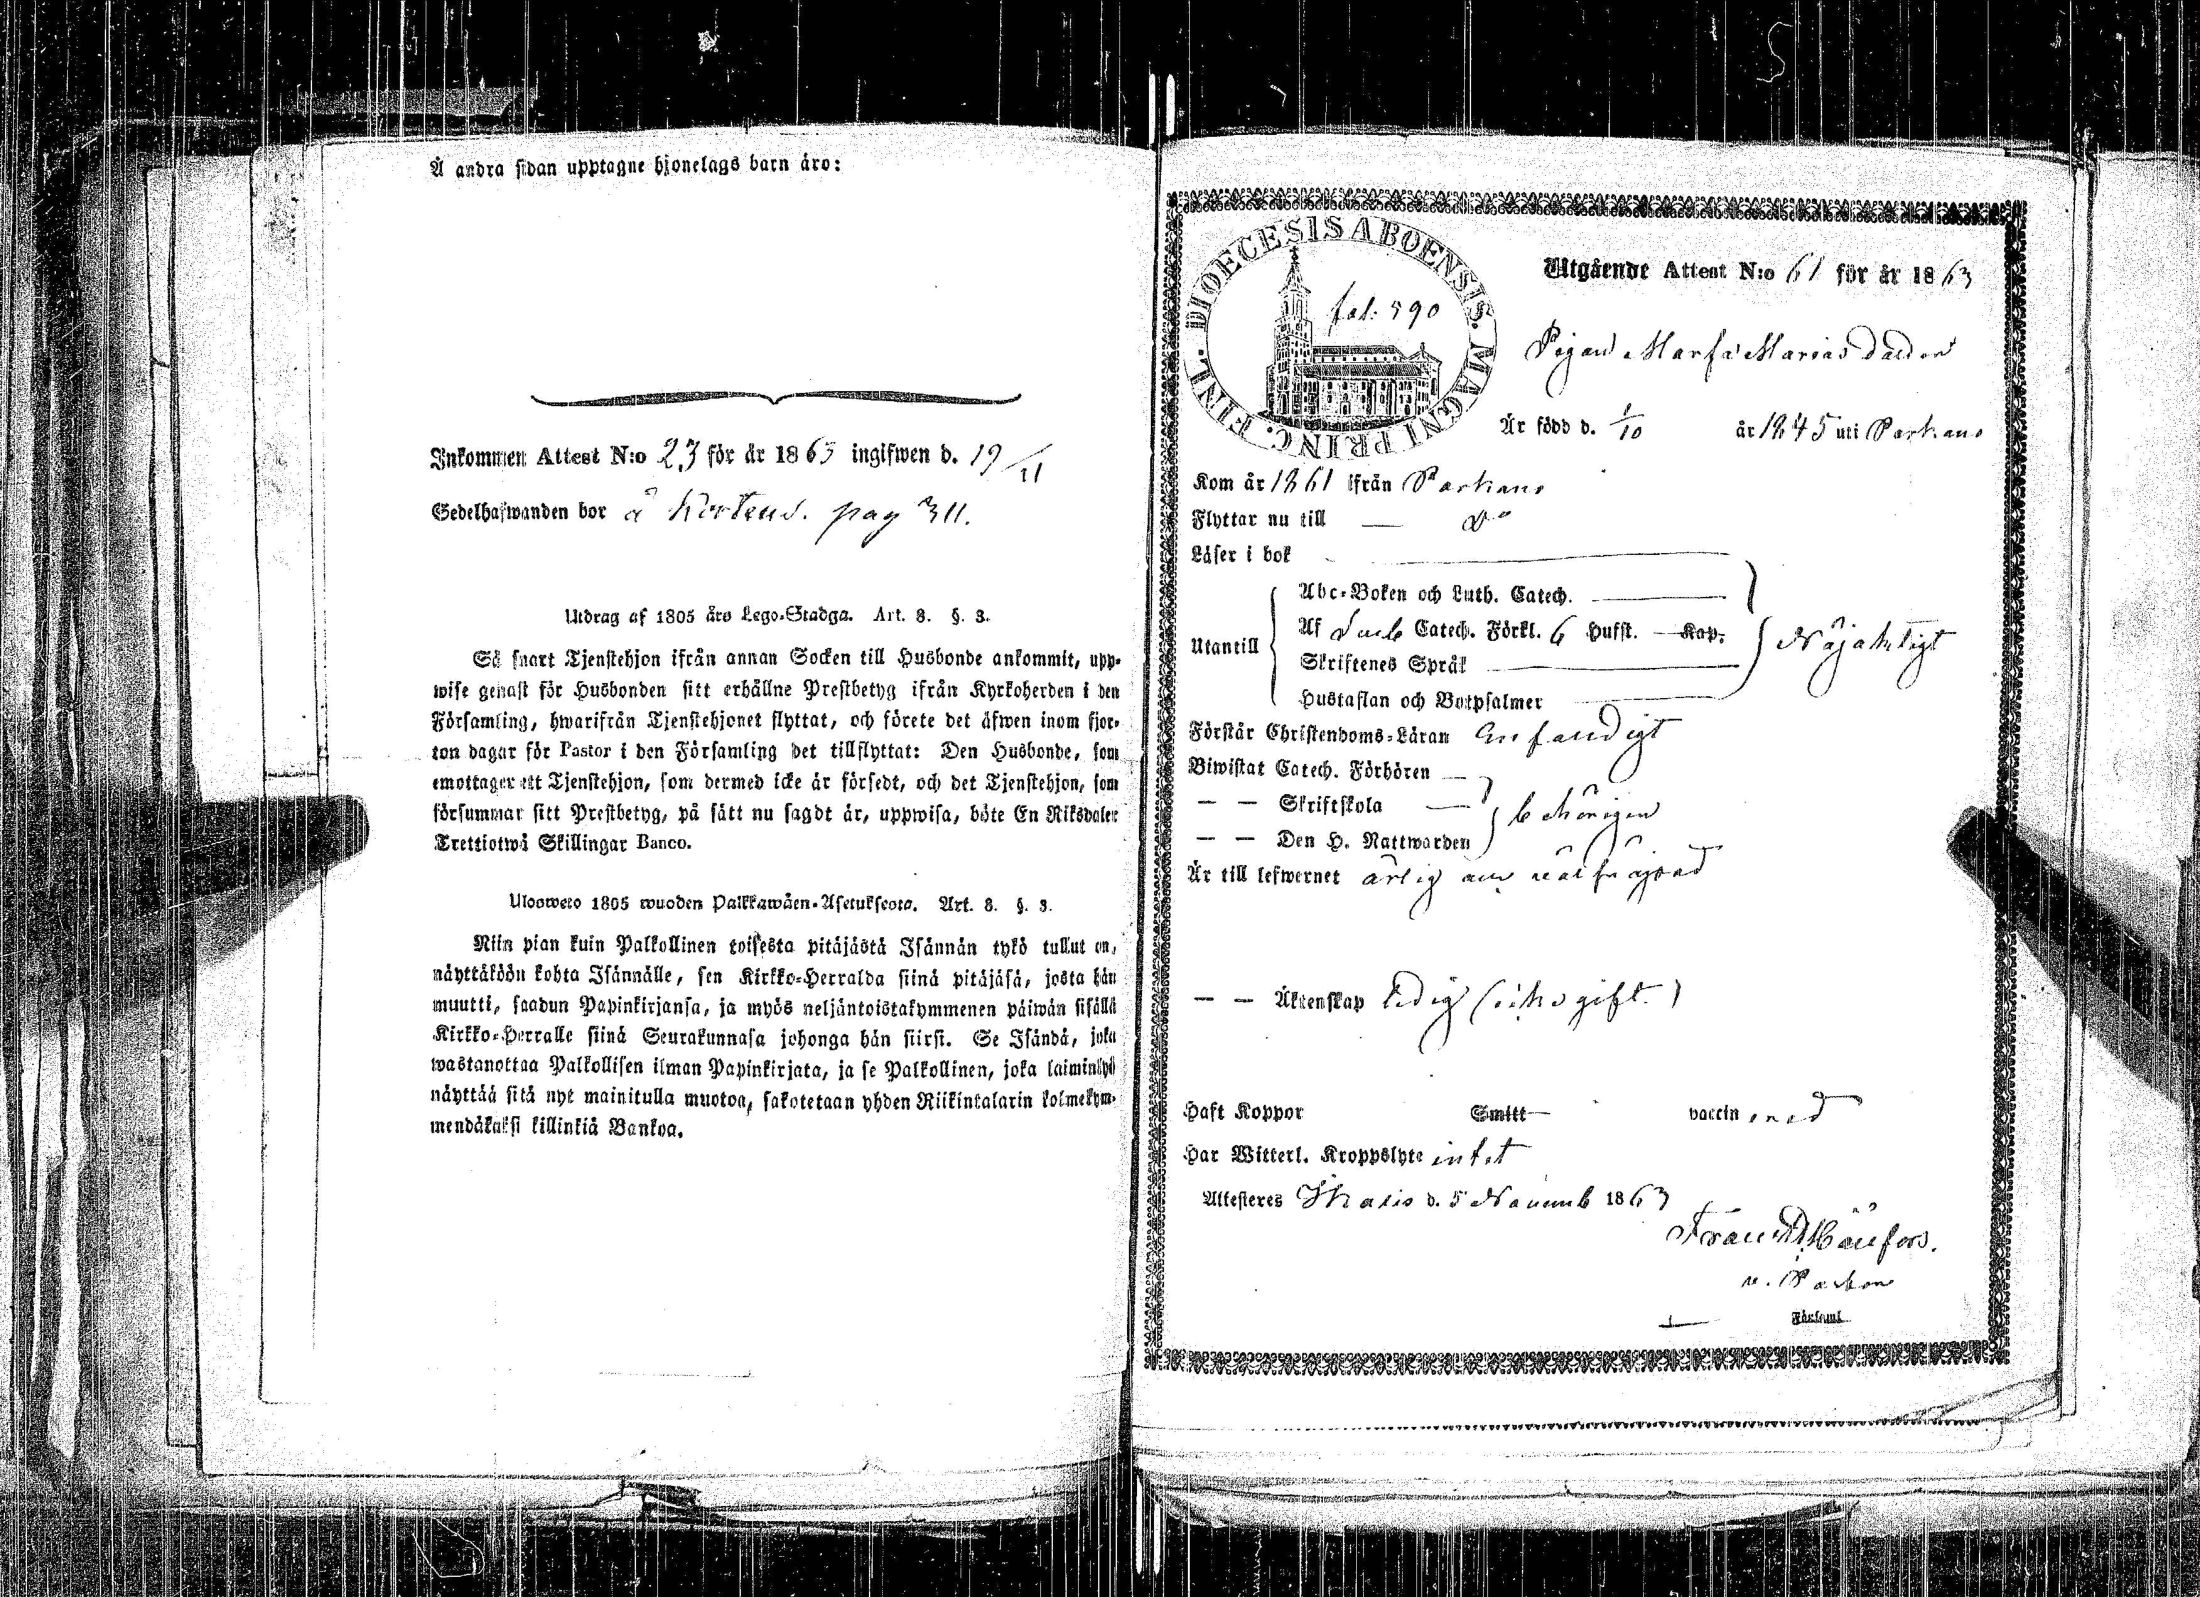 Å andra sidan upptagne hjonelags barn äro:
Inkommen Attest N:o 23 för år 1863 ingifwen d. 19/11
Sedelhafwanden bor å pag 311.
Utdrag af 1805 års Lego-Stadga. Art. 8. §. 3.
Så snart Tjenstehjon ifrån annan Socken till Husbonde ankommit, upp-
wise genast för Husbonden sitt erhållne Prestbetyg ifrån Kyrkoherden i den
Församling, hwarifrån Tjenstehjonet flyttat, och förete det äfwen inom fjor-
ton dagar för Pastor i den Församling det tillflyttat: Den Husbonde, som
emottager ett Tjenstehjon, som dermed icke är försedt, och det Tjenstehjon, som
försummar sitt Prestbetyg, på sätt nu sagdt är, uppwisa, böte En Riksdaler
Trettiotwå Skillingar Banco.
Ulosweto 1805 wuoden Palkkawäen-Asetuksesta. Art. 8. §. 3.
Niin pian kuin Palkollinen toisesta pitäjästä Isännän tykö tullut on,
näyttäköön kohta Isännälle, sen Kirkko-Herralda siinä pitäjäsä, josta hän
muutti, saadun Papinkirjansa, ja myös neljäntoistakymmenen päiwän sisällä
Kirkko-Herralle siinä Seurakunnasa johonga hän siirsi. Se Isändä, joka
wastanottaa Palkollisen ilman Papinkirjata, ja se Palkollinen, joka laiminlyö
näyttää sitä nyt mainitulla muotoa, sakotetaan yhden Riikintalarin kolmekym-
mendäkaksi killinkiä Bankoa.
DIOECESIS ABOENSIS. MAGNI PRINC. FINL.
fol: 590
Utgående Attest N:o 61 för år 1863
Pigan Marfa Mariasdotter
Är född d. 1/10 år 1845 uti Parkano
Kom år 1861 ifrån Parkano
Flyttar nu till — Do
Läser i bok
Abc-Boken och Luth. Catech.
Utantill Af Catech. Förkl. 6 Hufst. Kap.
Skriftenes Språk
Hustaflan och Botpsalmer
Nöjaktigt
Förstår Christendoms-Läran enfaldigt
Biwistat Catech. Förhören
— — Skriftskola
— — Den H. Nattwarden
behörigen
Är till lefwernet ärlig och wälfräjdad
— — Äktenskap ledig (icke gift.)
Haft Koppor Smitt vaccinerad
Har Witterl. Kroppslyte intet
Attesteres Ikalis d. 5 Novemb 1863
v. Pastor
Församl.